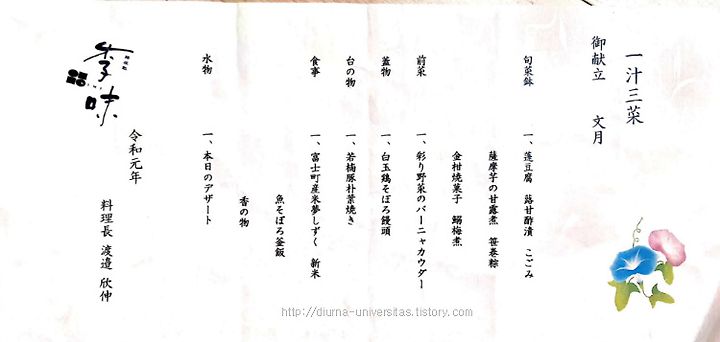 一汁三菜
御献立　文月
旬菜鉢　一、蓬豆腐　蕗甘酢漬　こごみ
薩摩芋の甘露煮　笹巻粽
金柑焼菓子　鰯梅煮
前菜　一、彩り野菜のバーニャカウダー
蓋物　一、白玉鶏そぼろ饅頭
台の物　一、若楠豚朴葉焼き
食事　一、富士町産米夢しずく　新米
魚そぼろ釜飯
香の物
水物　一、本日のデザート
令和元年
料理長　渡邉　欣伸
季味
http://diurna-universitas.tistory.com